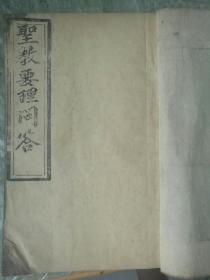 聖教要理問答